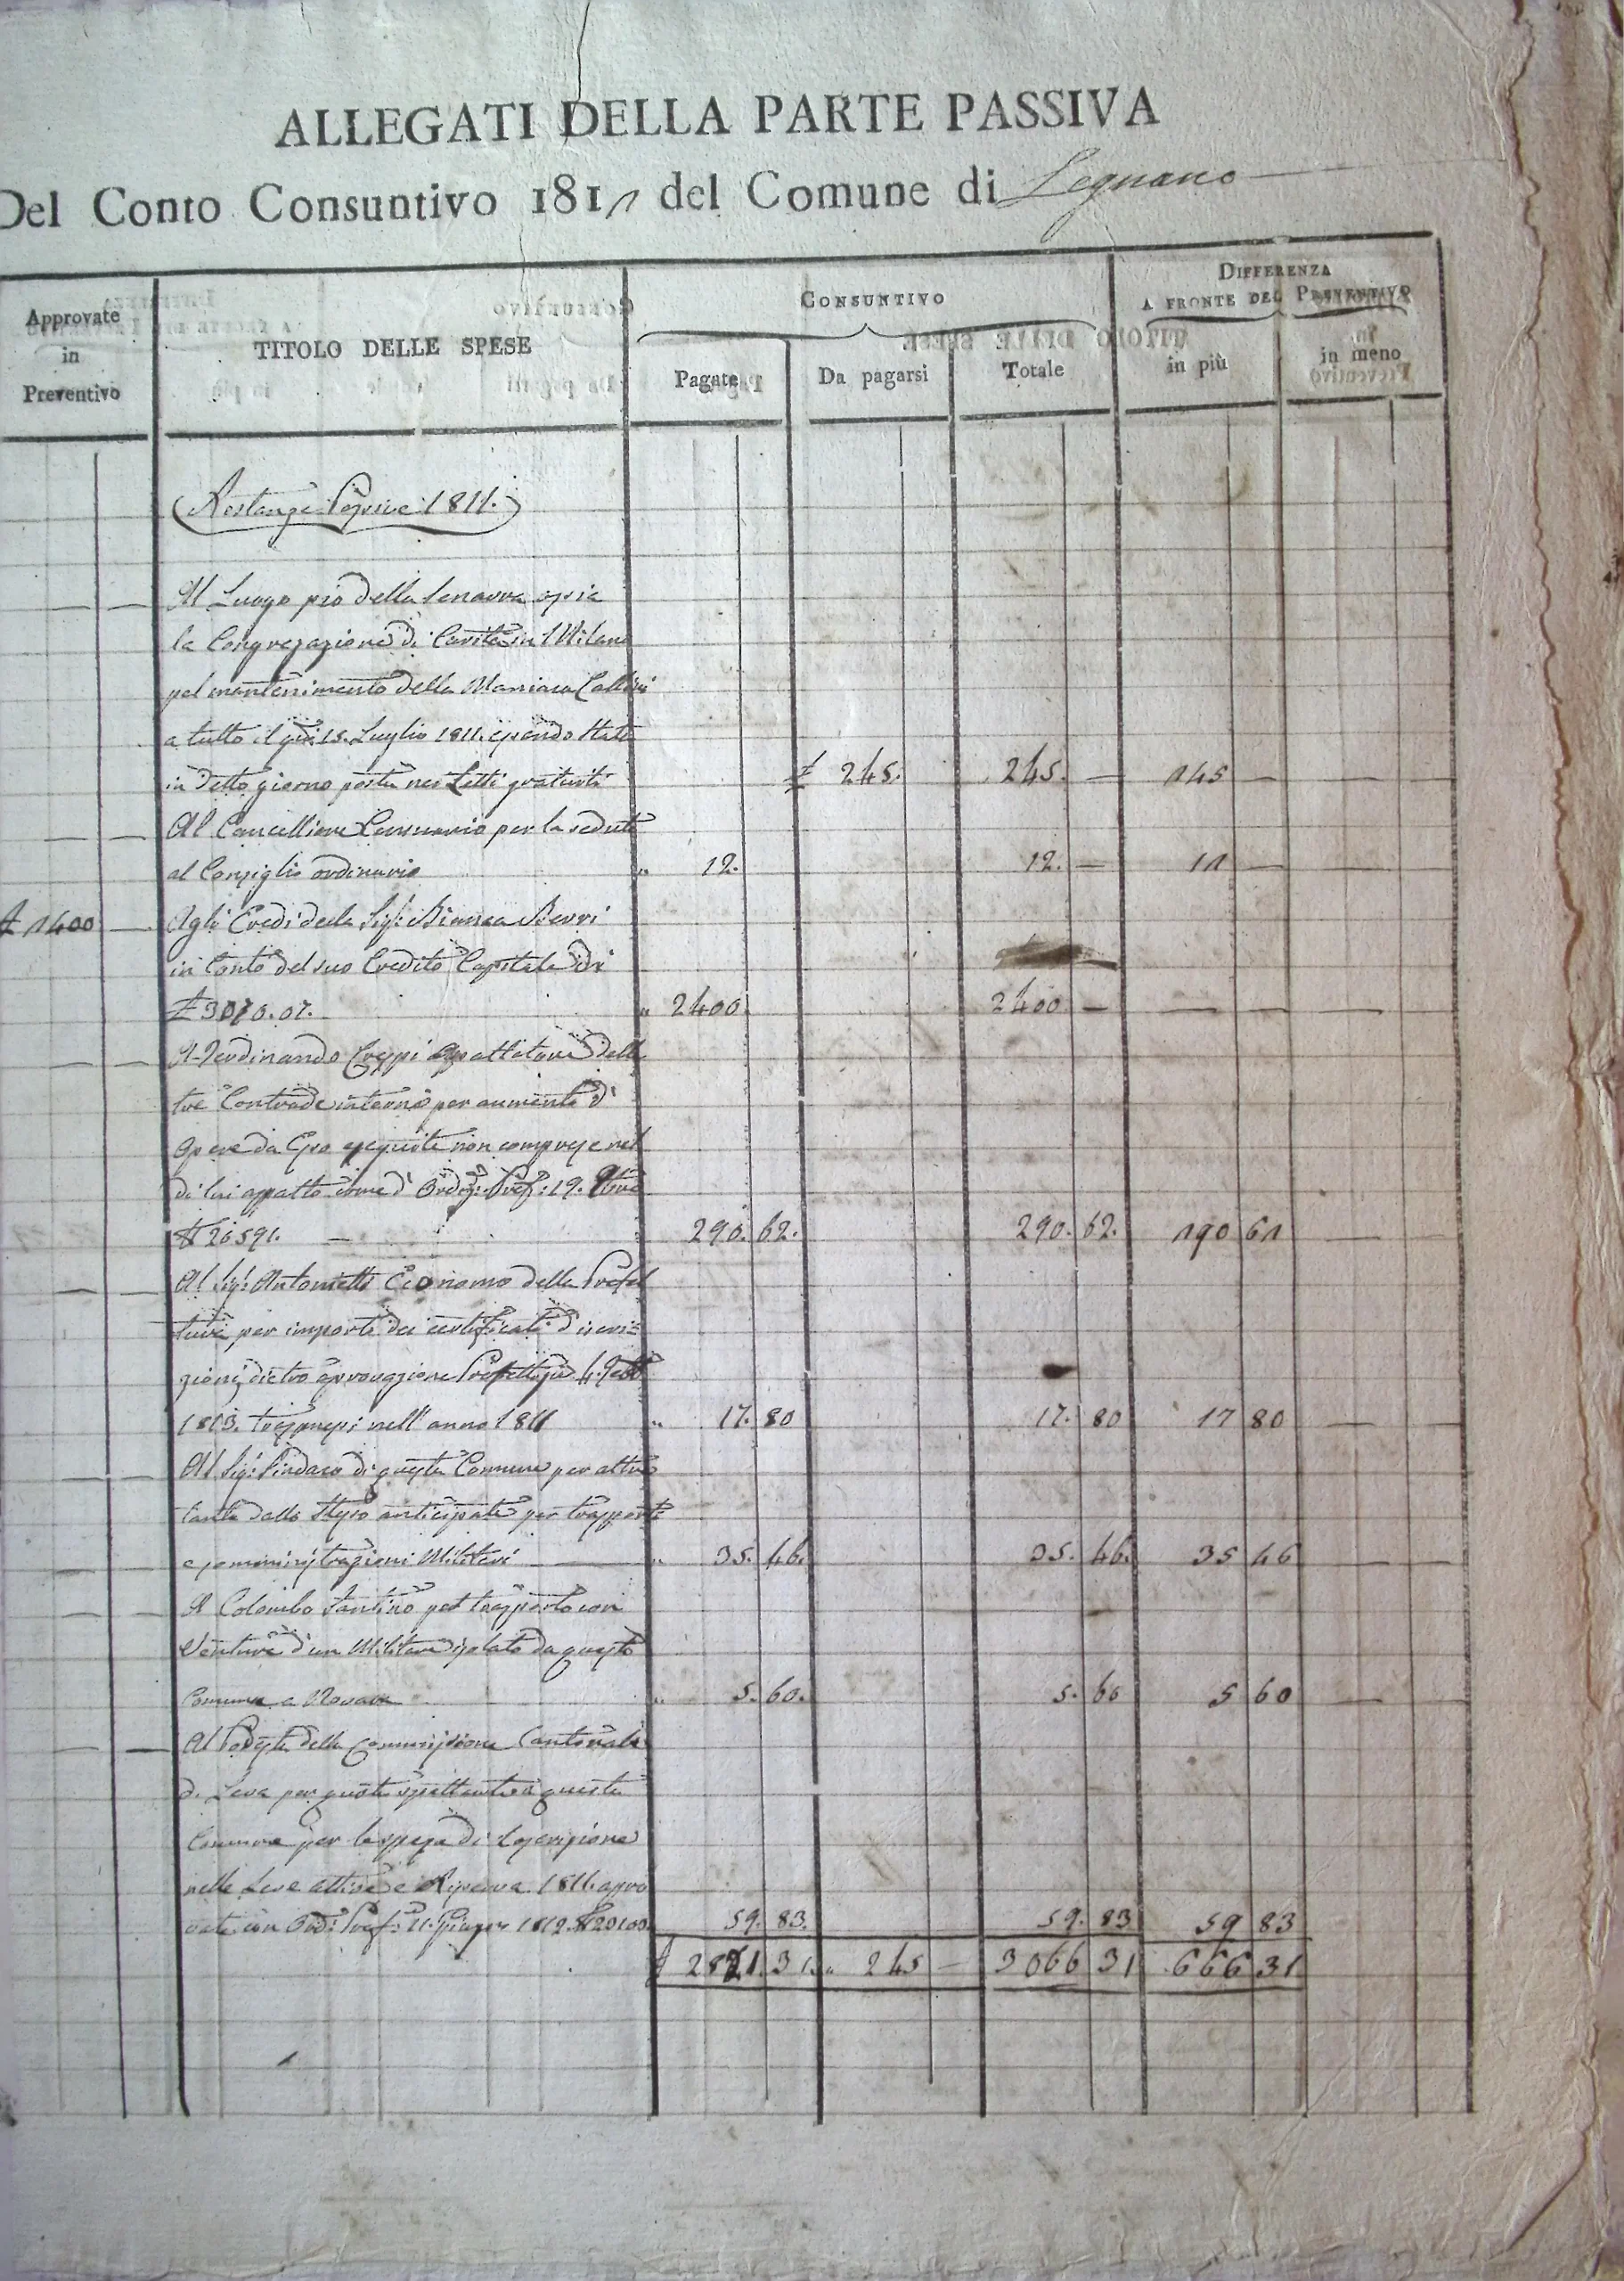 ALLEGATI DELLA PARTE PASSIVA
Del Conto Consuntivo 1811 del Comune di Legnano
Approvate in Preventivo
TITOLO DELLE SPESE
CONSUNTIVO
Pagate
Da pagarsi
Totale
DIFFERENZA
A FRONTE DEL PREVENTIVO
in più
in meno
Restanze 1811.
Al Luogo pio della Senavra ossia
la Congregazione di Carità in Milano
pel mantenimento della Maniaca
a tutto il 15. Luglio 1811. essendo stata
in detto giorno posta nei Letti gratuiti £ 245. 245. — 145 — — —
Al Cancelliere Censuario per la seduta
al Consiglio ordinario " 12. 12. — 11 — — —
£ 1400 — Agli Eredi della Sig.ra Bianca Berri
in conto del suo Credito Capitale di
£ 3070.07. " 2400 2400 — — — — —
A Ferdinando Crespi appaltatore delle
tre Contrade interne per aumento d'
opere da Esso eseguite non comprese nel
di lui appalto come d' Ordz. Pref. 19.
N 26591. — 290. 62. 290. 62. 190 61 —
Al Sig. Antonietti Economo della Prefet
tura per importo dei certificati d'iscri=
zioni dietro approvazione Prefettizia 4.
1813. trasmessi nell'anno 1811 " 17. 80 17. 80 17 80 — —
Al Sig. Sindaco di questa Comune per altre
tante dallo stesso anticipate per trasporti
e somministrazioni Militari — " 35. 46. 35. 46. 35 46 — —
A Colombo Santino pel trasporto con
Vettura d'un Militare isolato da questo
Comune a Novara " 5. 60. 5. 60 5 60 —
Al Podestà della Commissione Cantonale
di Leva per quota spettante a questa
Comune per le spese di Coscrizione
nelle Leve attiva e Riserva 1811. appro
vate con Ord. Pref. 11. Giugno 1812. N 20100. 59. 83. 59. 83 59 83
£ 2821. 31. " 245 — 3066 31 666 31